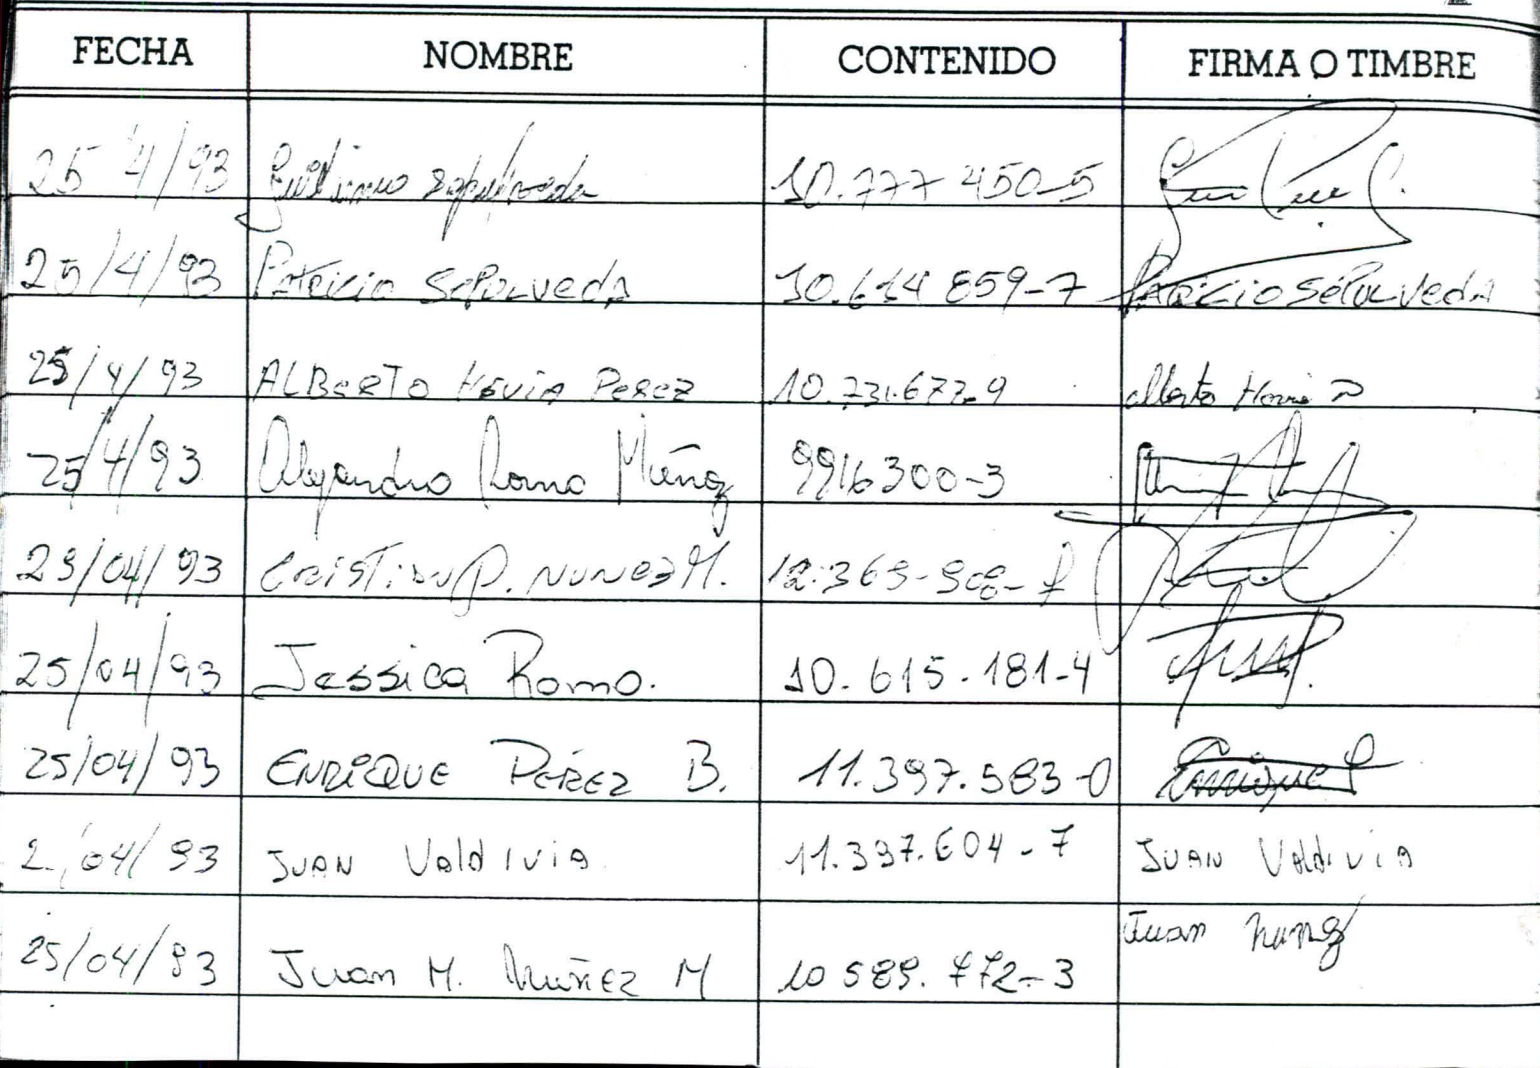 FECHA NOMBRE CONTENIDO FIRMA O TIMBRE
25 4/93 Guillermo Sepulveda 10.777 450-5
25/4/93 Patricio SePulveda 10.614 859-7 Patricio SePulveda
25/4/93 ALBERTO HEVIA PEREZ 10.731.677-9 Alberto Hevia P
25/4/93 Alejandro Romo Muñoz 9916300-3
25/04/93 CRISTIAN P. NUNEZ M. 12.369-908-
25/04/93 Jessica Romo. 10.615.181-4
25/04/93 ENRIQUE PÉREZ B. 11.397.583-0 Enrique P
2 /04/93 JUAN Valdivia 11.397.604-7 JUAN Valdivia
25/04/93 Juan M. Nuñez M 10 589.772-3 Juan Nuñez